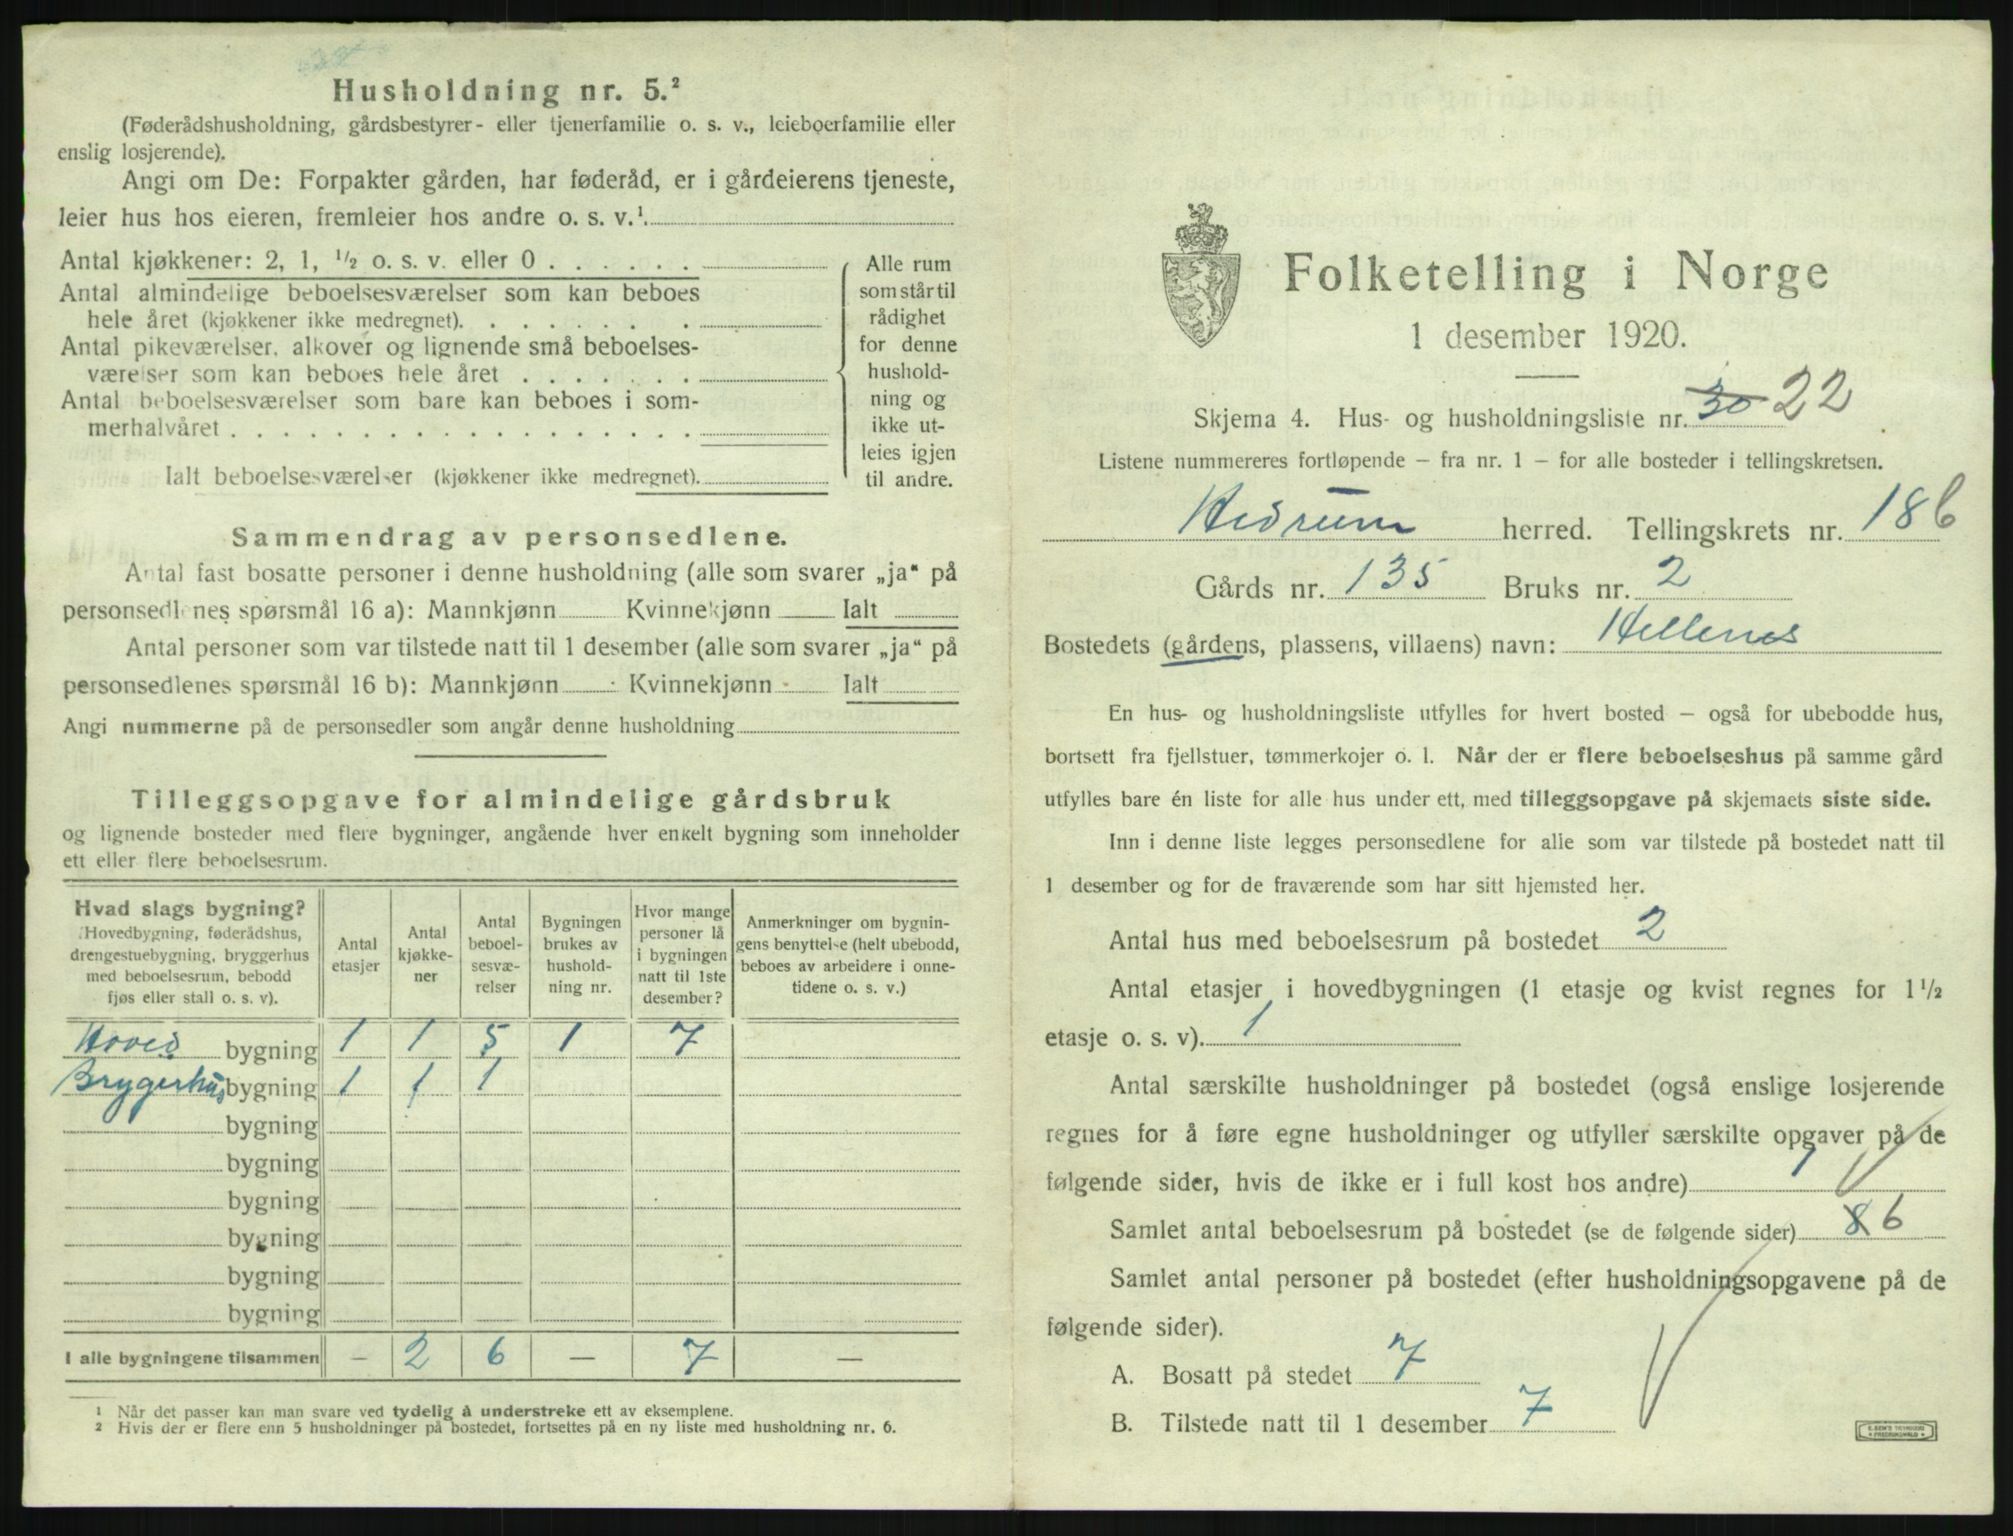 Husholdning nr. 5.²
(Føderådshusholdning, gårdsbestyrer- eller tjenerfamilie o. s. v., leieboerfamilie eller
enslig losjerende).
Angi om De: Forpakter gården, har føderåd, er i gårdeierens tjeneste,
leier hus hos eieren, fremleier hos andre o. s. v.¹
Antal kjøkkener: 2, 1, ½ o. s. v. eller 0 . . . . . .
Antal almindelige beboelsesværelser som kan beboes
hele året (kjøkkener ikke medregnet). . . . . . . .
Antal pikeværelser, alkover og lignende små beboelses-
værelser som kan beboes hele året . . . . . . .
Antal beboelsesværelser som bare kan beboes i som-
merhalvåret . . . . . . . . . . . . . . . . . .
Ialt beboelsesværelser (kjøkkener ikke medregnet).
Alle rum
som står til
rådighet
for denne
hushold-
ning og
ikke ut-
leies igjen
til andre.
Sammendrag av personsedlene.
Antal fast bosatte personer i denne husholdning (alle som svarer „ja“ på
personsedlenes spørsmål 16 a): Mannkjønn Kvinnekjønn Ialt
Antal personer som var tilstede natt til 1 desember (alle som svarer „ja“ på
personsedlenes spørsmål 16 b): Mannkjønn Kvinnekjønn Ialt
Angi nummerne på de personsedler som angår denne husholdning
Tilleggsopgave for almindelige gårdsbruk
og lignende bosteder med flere bygninger, angående hver enkelt bygning som inneholder
ett eller flere beboelsesrum.
Hvad slags bygning?
(Hovedbygning, føderådshus,
drengestuebygning, bryggerhus
med beboelsesrum, bebodd
fjøs eller stall o. s. v).
Antal
etasjer
Antal
kjøkke-
ner
Antal
beboel-
sesvæ-
relser
Bygningen
brukes av
hushold-
ning nr.
Hvor mange
personer lå
i bygningen
natt til 1ste
desember?
Anmerkninger om bygnin-
gens benyttelse (helt ubebodd,
beboes av arbeidere i onne-
tidene o. s. v.)
Hoved bygning 1 1 5 1 7
Brygerhus bygning 1 1 1
bygning
bygning
bygning
bygning
bygning
bygning
I alle bygningene tilsammen — 2 6 — 7 —
¹ Når det passer kan man svare ved tydelig å understreke ett av eksemplene.
² Hvis der er flere enn 5 husholdninger på bostedet, fortsettes på en ny liste med husholdning nr. 6.
Folketelling i Norge
1 desember 1920.
Skjema 4. Hus- og husholdningsliste nr. 30 22
Listene nummereres fortløpende — fra nr. 1 — for alle bosteder i tellingskretsen.
Hedrum herred. Tellingskrets nr. 18 b
Gårds nr. 135 Bruks nr. 2
Bostedets (gårdens, plassens, villaens) navn: Hellenes
En hus- og husholdningsliste utfylles for hvert bosted — også for ubebodde hus,
bortsett fra fjellstuer, tømmerkojer o. l. Når der er flere beboelseshus på samme gård
utfylles bare én liste for alle hus under ett, med tilleggsopgave på skjemaets siste side.
Inn i denne liste legges personsedlene for alle som var tilstede på bostedet natt til
1 desember og for de fraværende som har sitt hjemsted her.
Antal hus med beboelsesrum på bostedet 2
Antal etasjer i hovedbygningen (1 etasje og kvist regnes for 1½
etasje o. s. v). 1
Antal særskilte husholdninger på bostedet (også enslige losjerende
regnes for å føre egne husholdninger og utfyller særskilte opgaver på de
følgende sider, hvis de ikke er i full kost hos andre) 1
Samlet antal beboelsesrum på bostedet (se de følgende sider) 8 6
Samlet antal personer på bostedet (efter husholdningsopgavene på de
følgende sider).
A. Bosatt på stedet 7
B. Tilstede natt til 1 desember 7